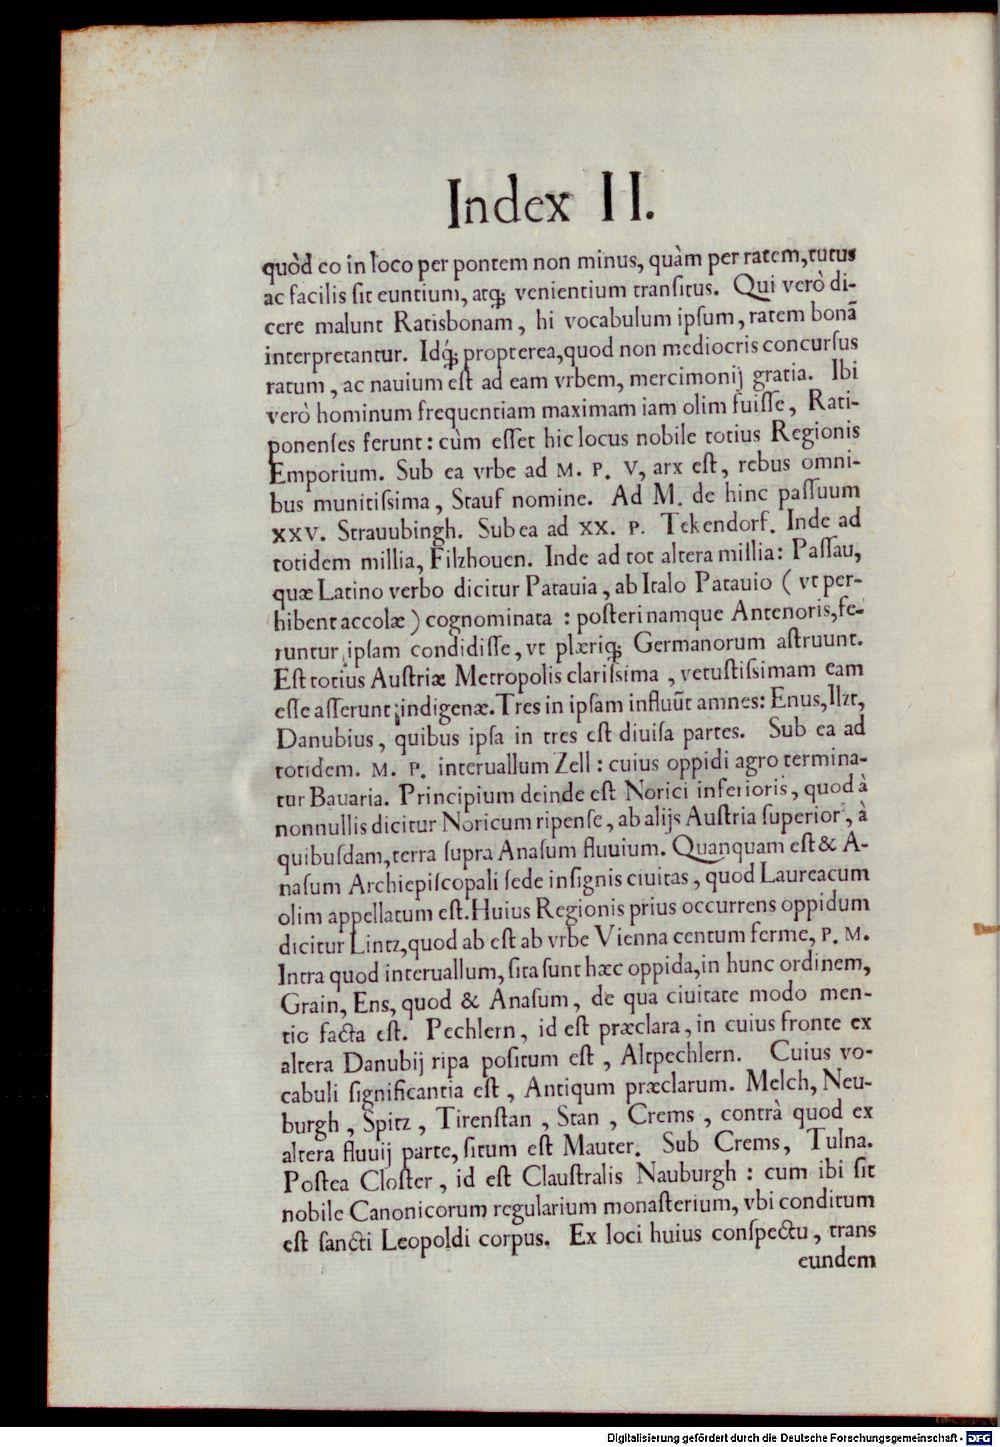 Index II.
quòd eo in loco per pontem non minus, quàm per ratem, tutus
ac facilis ſit euntium, atq; venientium tranſitus. Qui verò di-
cere malunt Ratisbonam, hi vocabulum ipſum, ratem bonā
interpretantur. Idq́; propterea, quod non mediocris concurſus
ratum, ac nauium eſt ad eam vrbem, mercimonij gratia. Ibi
verò hominum frequentiam maximam iam olim fuiſſe, Rati-
ponenſes ferunt: cùm eſſet hic locus nobile totius Regionis
Emporium. Sub ea vrbe ad M. P. V, arx eſt, rebus omni-
bus munitiſsima, Stauf nomine. Ad M. de hinc paſſuum
XXV. Strauubingh. Sub ea ad XX. P. Tekendorf. Inde ad
totidem millia, Filzhouen. Inde ad tot altera millia: Paſſau,
quæ Latino verbo dicitur Patauia, ab Italo Patauio (vt per-
hibent accolæ) cognominata: poſteri namque Antenoris, fe-
runtur ipſam condidiſſe, vt plæriq; Germanorum aſtruunt.
Eſt totius Auſtriæ Metropolis clariſsima, vetuſtiſsimam eam
eſſe aſſerunt indigenæ. Tres in ipſam influūt amnes: Enus, Ilzt,
Danubius, quibus ipſa in tres eſt diuiſa partes. Sub ea ad
totidem. M. P. interuallum Zell: cuius oppidi agro termina-
tur Bauaria. Principium deinde eſt Norici inferioris, quod à
nonnullis dicitur Noricum ripenſe, ab alijs Auſtria ſuperior, à
quibuſdam, terra ſupra Anaſum fluuium. Quanquam eſt & A-
naſum Archiepiſcopali ſede inſignis ciuitas, quod Laureacum
olim appellatum eſt. Huius Regionis prius occurrens oppidum
dicitur Lintz, quod ab eſt ab vrbe Vienna centum ferme, P. M.
Intra quod interuallum, ſita ſunt hæc oppida, in hunc ordinem,
Grain, Ens, quod & Anaſum, de qua ciuitate modo men-
tio facta eſt. Pechlern, id eſt præclara, in cuius fronte ex
altera Danubij ripa poſitum eſt, Altpechlern. Cuius vo-
cabuli ſignificantia eſt, Antiqum præclarum. Melch, Neu-
burgh, Spitz, Tirenſtan, Stan, Crems, contrà quod ex
altera fluuij parte, ſitum eſt Mauter. Sub Crems, Tulna.
Poſtea Cloſter, id eſt Clauſtralis Nauburgh: cum ibi ſit
nobile Canonicorum regularium monaſterium, vbi conditum
eſt ſancti Leopoldi corpus. Ex loci huius conſpectu, trans
eundem
Digitalisierung gefördert durch die Deutsche Forschungsgemeinschaft - DFG